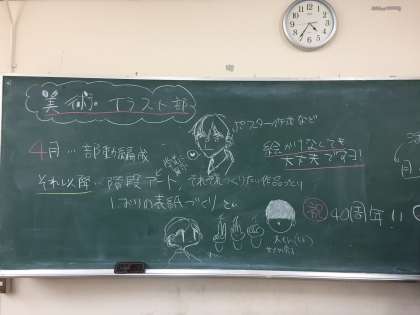 美術・イラスト部
ポスター作成など
4月…部動編成
絵かけなくても
大丈夫です!
それ以降…階段アート,それぞれつくりたい作品づくり
しおりの表紙づくり とか
祝 40周年!!